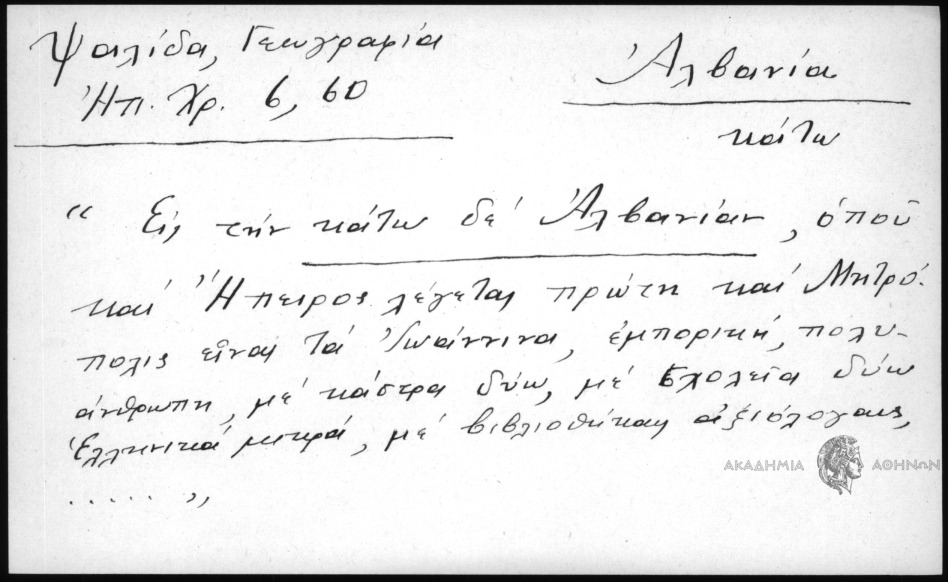 Ψαλίδα, Γεωγραφία
Ἠπ. Χρ. 6, 60
Ἀλβανία
κάτω
“ Εἰς τήν κάτω δέ Ἀλβανίαν, ὁποῦ
καί Ἤπειρος λέγεται πρώτη καί Μητρό-
πολις εἶναι τά Ἰωάννινα, ἐμπορική, πολυ-
άνθρωπη, μέ κάστρα δύω, μέ σχολεῖα δύω
Ἑλληνικά μικρά, μέ βιβλιοθήκας ἀξιόλογαις,
..... „
ΑΚΑΔΗΜΙΑ ΑΘΗΝΩΝ